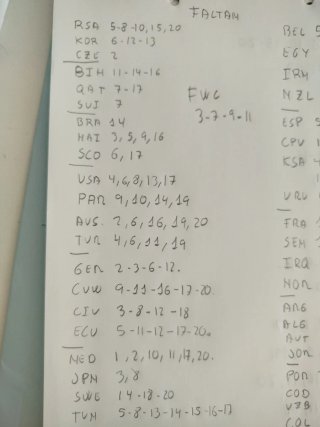 FALTAM
RSA 5-8-10,15,20
KOR 6-12-13
CZE 2
BIH 11-14-16
QAT 7-17
SUI 7
BRA 14
HAI 3,5,9,16
SCO 6,17
USA 4,6,8,13,17
PAR 9,10,14,19
AUS. 2,6,16,19,20
TUR 4,6,11,19
GER 2-3-6-12.
CUW 9-11-16-17-20.
CIV 3-8-12-18
ECU 5-11-12-17-20.
NED 1,2,10,11,17,20.
JPN 3,8
SWE 14-18-20
TUN 5-8-13-14-15-16-17
FWC
3-7-9-11
BEL
EGY
IRN
NZL
ESP
CPV
KSA
URU
FRA
SEN
IRQ
NOR
ARG
ALG
AUT
JOR
POR
COD
UZB
COL